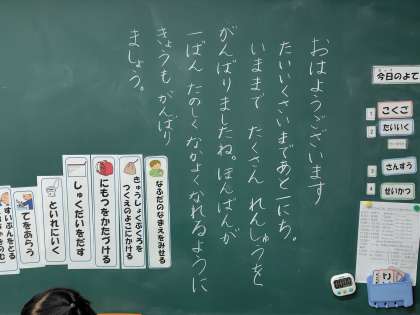 おはようございます
たいいくさいまであと一にち。
いままで たくさん れんしゅうを
がんばりましたね。ほんばんが
一ばん たのしくなかよくがれるように
きょうも がんばり
ましょう。
今日のよて
1 こくご
2 たいいく
3 さんすう
4 せいかつ
なふだのなまえをみせる
きゅうしょくぶくろを
つくえのよこにかける
にもつをかたづける
しゅくだいをだす
といれにいく
てをあらう
すいぶんをとる